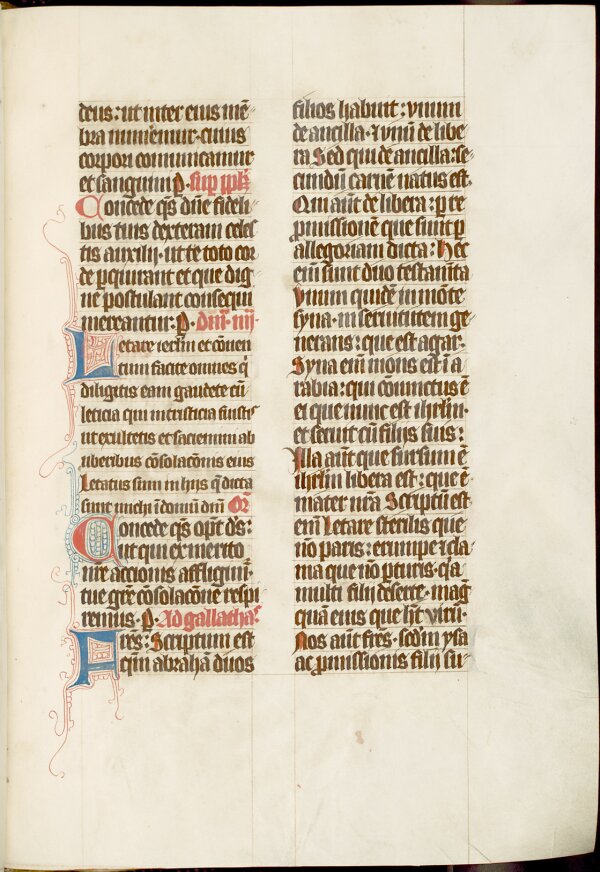 deus: ut inter eius mē
bra numeremur cuius
corpori cōmunicamur
et sanguini P. sup pplm
Concede qs dn̄e fideli
bus tuis dexteram celes
tis auxilij. ut te toto cor
de ꝑquirant et que dig
ne postulant consequi
mereantur. P. Dm̄. iiij.
Letare ierlm et cōuen
tum facite omnes q̇
diligitis eam gaudete cū
leticia qui in tristicia fuistis
ut exultetis et saciemini ab
uberibus cōsolacōnis eius
Letatus sum in hys q̄ dicta
sunt michi ī domū dnī Or̄
Concede qs opt̄ ds:
ut qui ex merito
nr̄e accionis affligimr
tue gr̄e cōsolacōne respi
remus. P. Ad gallathas
Frēs: Scriptum est
qm̄ abrahā duos
filios habuit: vnum
de ancilla. ⁊ vnū de libe
ra Sed qui de ancilla: se
cundū carnē natus est.
Qui aūt de libera: ꝑ re
ꝓmissionē que sunt ꝑ
allegoriam dicta: Hec
em̄ sunt duo testamēta
Vnum quidē in mōte
syna. in seruitutem ge
nerans: que est agar.
Syna em̄ mons est ī a
rabia: qui coniunctus ē
ei que nunc est ihrlm.
et seruit cū filijs suis:
Illa aūt que sursum ē
ihrlm libera est: que ē
mater nr̄a Scriptū est
em̄ Letare sterilis que
nō paris: erumpe ⁊ cla
ma que nō ꝑturis. q̄a
multi filij deserte. maḡ
quā eius que h̄t virū.
Nos aūt frēs. scdm ysa
ac ꝓmissionis filij su-